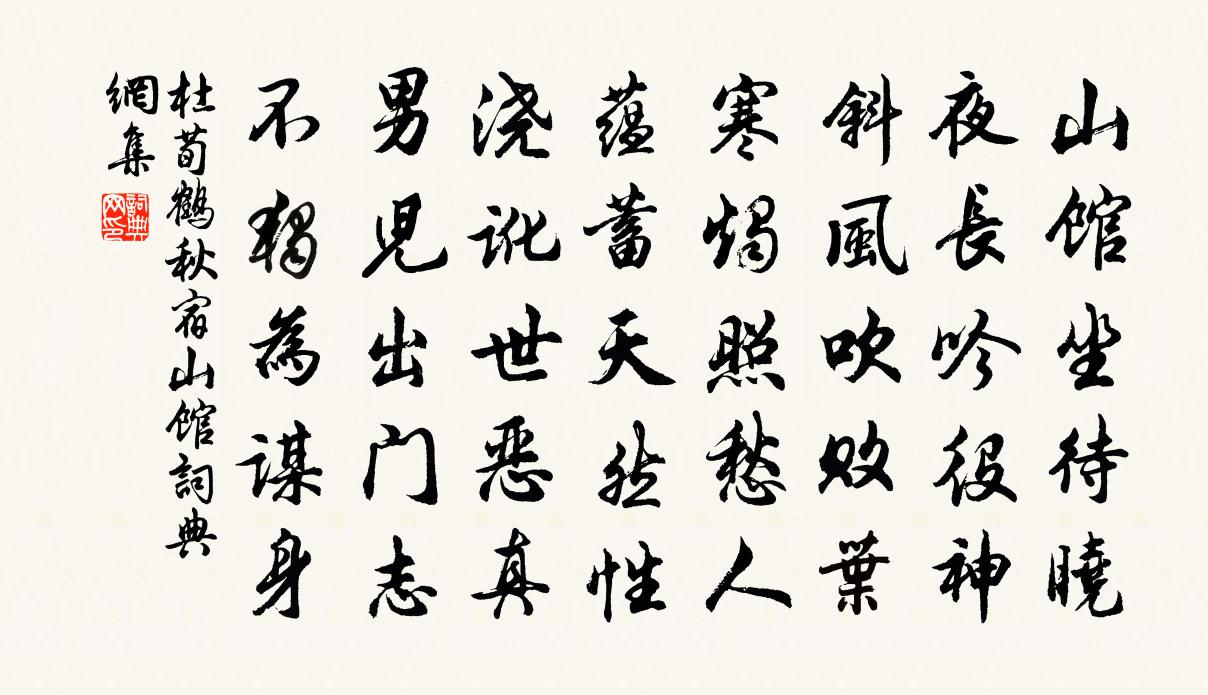 山館坐待曉
夜長吟役神
斜風吹敗葉
寒燭照愁人
蘊蓄天然性
浇訛世恶真
男兒出门志
不獨為謀身
杜荀鶴秋宿山館詞典
網集
詞典网印